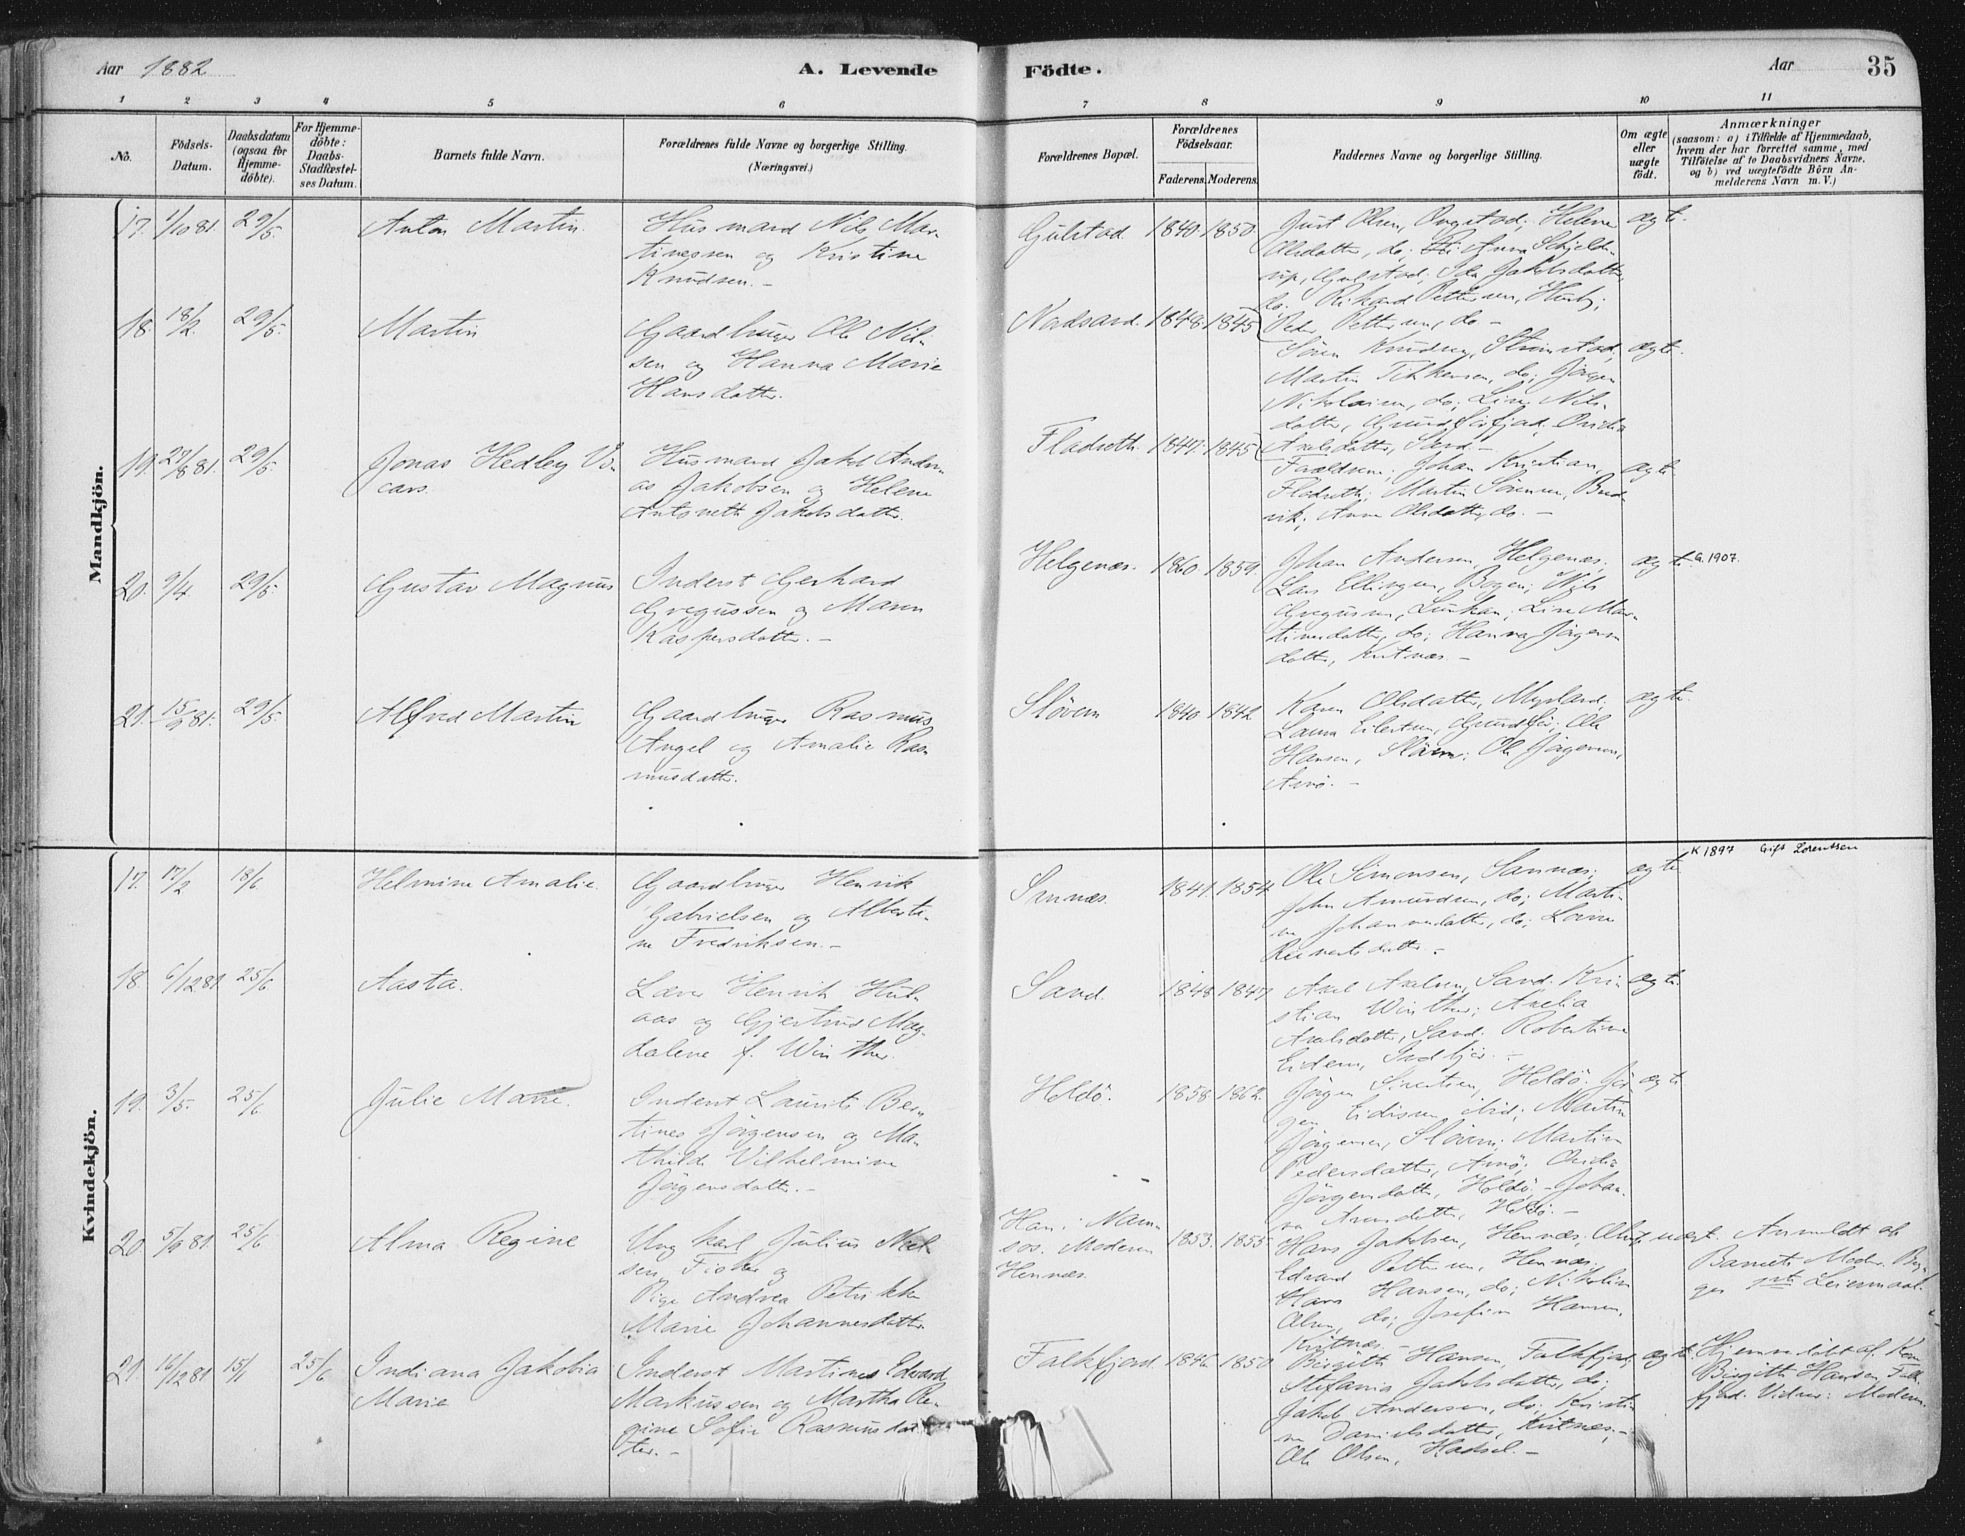 Aar 1882
A. Levende
Födte.
Aar
35
1 2 3 4 5 6 7 8 9 10 11
No.
Födsels-
Datum.
Daabsdatum
(ogsaa for
Hjemme-
döbte).
For Hjemme-
döbte:
Daabs-
Stadfæstel-
ses Datum.
Barnets fulde Navn.
Forældrenes fulde Navne og borgerlige Stilling.
(Næringsvei.)
Forældrenes Bopæl.
Forældrenes
Födselsaar.
Faderens. Moderens.
Faddernes Navne og borgerlig Stilling.
Om ægte
eller
uægte
födt.
Anmærkninger
(saasom: a) i Tilfælde af Hjemmedaab,
hvem der har forrettet samme, med
Tilföielse af to Daabsvidners Navne.
og b) ved uægtefödte Börn An-
melderens Navn m. V.)
Mandkjön.
17. 1/10 81. 29/5. Anton Martin.
Husmand Nils Mar-
tinessen og Kristine
Knudsen.-
Gulstad. 1840. 1850.
Just Olsen, ; Helene
Olsdatter, do; Anna Schjeld-
rup, Gulstad; Ida Jakobsdatter,
do. Rikard Pettersen, Husby;
Peder Pettersen, do -
ægte.
18. 18/2. 29/5. Martin
Gaardbruger Ole Nil-
sen og Hanna Marie
Hansdatter.
Nordsand. 1848. 1845
Sören Knudsen, ;
Martin , do; Jörgen
Nikolaisen, do; Line Nils-
datter, Grundförfjord;
Axelsdatter, Sand.-
ægte.
19. 27/8 81. 29/5. Jonas Hedley Vi-
cars.
Husmand Jakob Andre-
as Jakobsen og Helene
Antonette Jakobsdatter.
Fladseth. 1847. 1845
Forældrene; Johan Kristian,
Fladseth; Martin Sörensen, Bud-
vik; Anne Olsdatter, do. -
ægte
20. 9/4 29/5. Gustav Magnus
Inderst Gerhard
Gregussen og Maren
Kaspersdatter. -
Helgenæs. 1860. 1859.
Johan Andersen, Helgenæs;
Lars Ellingsen, Bogen; Nils
Gregussen, ; Line Mar-
tinusdatter, do; Hanna Jörgens-
datter, Kvitnæs.-
ægte G. 1907.
21. 15/9 81. 29/5. Alfred Martin
Gaardbruger Rasmus
Angel og Amalie Ras-
musdatter.
Slöveren 1840 1842
Karen Olsdatter, Myrland;
Laura Eilertsen, Grundför; Ole
Hansen, Slöveren; Ole Jörgensen,
Arnö. -
ægte.
Kvindekjön.
17. 17/2 18/6 Helmine Amalie.
Gaardbruger Henrik
Gabrielsen og Alberti-
ne Fredriksen.-
Sannæs. 1841. 1854.
Ole Simonsen, Sannæs;
John Amundsen, do; Marti-
ne Johannesdatter, do; Lovise
Reinertsdatter.-
ægte
K 1897 Gift Lorentsen
18. 6/12 81. 25/6 Aasta.
Lærer Henrik Hul-
aas og Gjertrud Mag-
dalene f. Winther.
Sand. 1848. 1847.
Axel Axelsen, Sand. Kri-
stian Winther; Axelia
Axelsdatter, Sand; Robertine
Eidem, Indbjör. -
ægte.
19. 3/5. 25/6 Julie Marie.
Inderst Laurits Ber-
tines Jörgensen og Ma-
thilde Vilhelmine
Jörgensdatter.-
Holdö. 1858. 1862.
Jörgen Sivertsen, Holdö. Jör-
gen Eidissen, ibid; Martin
Jörgensen, Slöveren. Martine
Pedersdatter, Arnö; Ovidia
Jörgensdatter, Holdö.- Johan-
na Arnesdatter, Holdö.-
ægte
20. 5/9 81. 25/6 Alma Regine
Ungkarl Julius Niel-
sen, Fisker og
Pige Andrea Petrikke
Marie Johannesdatter.
Han: Nam-
sos. Moderen
Hennæs.
1853. 1855.
Hans Jakobsen, Hennæs,
Edvard Pettersen, Hennæs;
Hans Hansen, do; Nikoline
Olsen, do; Josefine Hansen,
Kvitnæs.-
uægt.
Anmeldt af
Barnets Moder. Beg-
ges 1ste Leiermaal.
21. 16/12 81 15/1 25/6 Indiana Jakobia
Marie
Inderst Martines Edvard
Markussen og Martha Re-
gine Sofie Rasmusdat-
ter.-
Falkfjord. 1846. 1850
Birgitte Hansen, Falkfjord;
Stefania Jakobsdatter, do;
Jakob Andersen, do; Kristi-
ne Danielsdatter, Kvitnæs;
Ole Olsen, Hadsel.-
ægte.
Hjemmedöbt af
Birgitte Hansen, Falk-
fjord. Vidner: Moderen